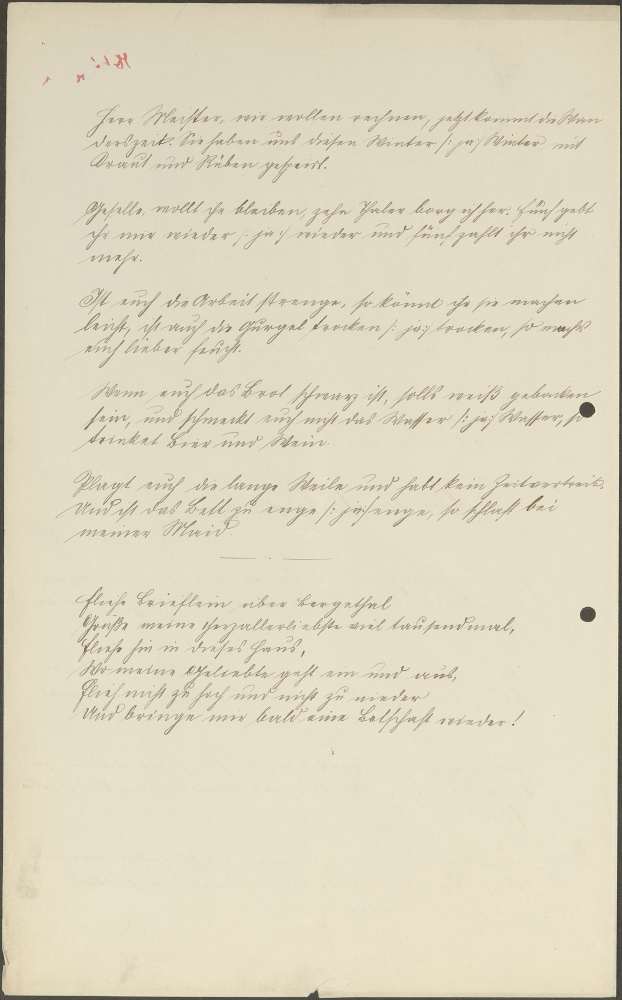 Herr Meister, wir wollen rechnen, jetzt kommt die Wan
derszeit. Sie haben uns diesen Winter /: ja :/ Winter mit
Kraut und Rüben gespeist.
Geselle, wollt ihr bleiben, zehn Thaler borg ich her. Fünf gebt
ihr mir wieder /: ja :/ wieder und fünf zahlt ihr nicht
mehr.
Ist euch die Arbeit strenge, so könnt ihr sie machen
leicht, ist auch die Gurgel trocken /: ja :/ trocken, so macht
euch lieber feucht.
Wenn euch das Brot schwarz ist, solls weiß gebacken
sein, und schmeckt euch nicht das Wasser /: ja :/ Wasser, so
trinket Bier und Wein.
Plagt euch die lange Weile und habt kein Zeitvertreib
Und ist das Bett zu enge /: ja :/ enge, so schlaft bei
meiner Maid
Fliehe Brieflein über Bergethal
Grüße meine Herzallerliebste viel tausendmal,
Fliehe hin in dieses Haus,
Wo meine Geliebte geht ein und aus,
Flieh nicht zu hoch und nicht zu nieder
Und bringe mir bald eine Botschaft wieder!